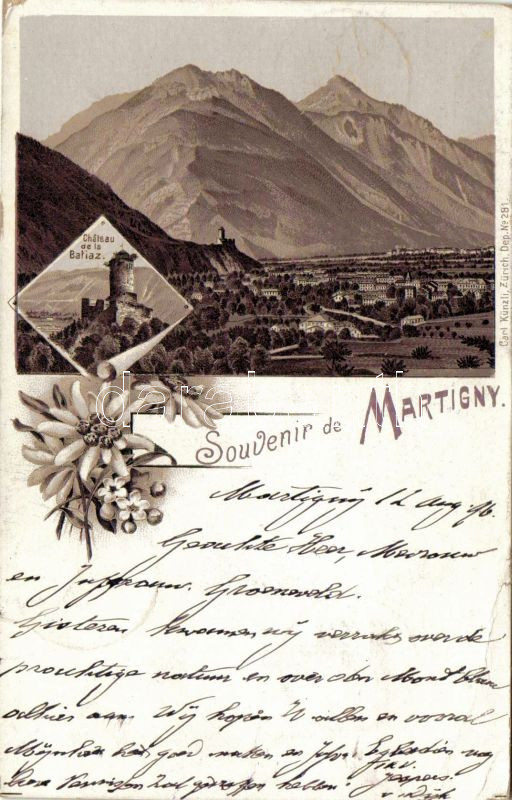 Château
de la
Batiaz.
Carl Künzli, Zürich, Dep. No 281.
Souvenir de MARTIGNY.
Martigny 12 Aug 96.
Geachte Heer, Mevrouw
en Juffrouw Groeneveld.
Gisteren kwamen wij verrukt over de
prachtige natuur en over den Mond blanc
alhier aan. Wij hopen U allen en vooral
Mijnheer goed maken en
hebben
v. Dijk